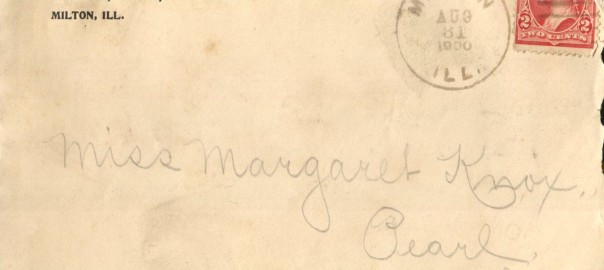 MILTON, ILL.
AUG
31
1900
ILL.
2 TWO CENTS 2
Miss Margaret Knox,
Pearl,